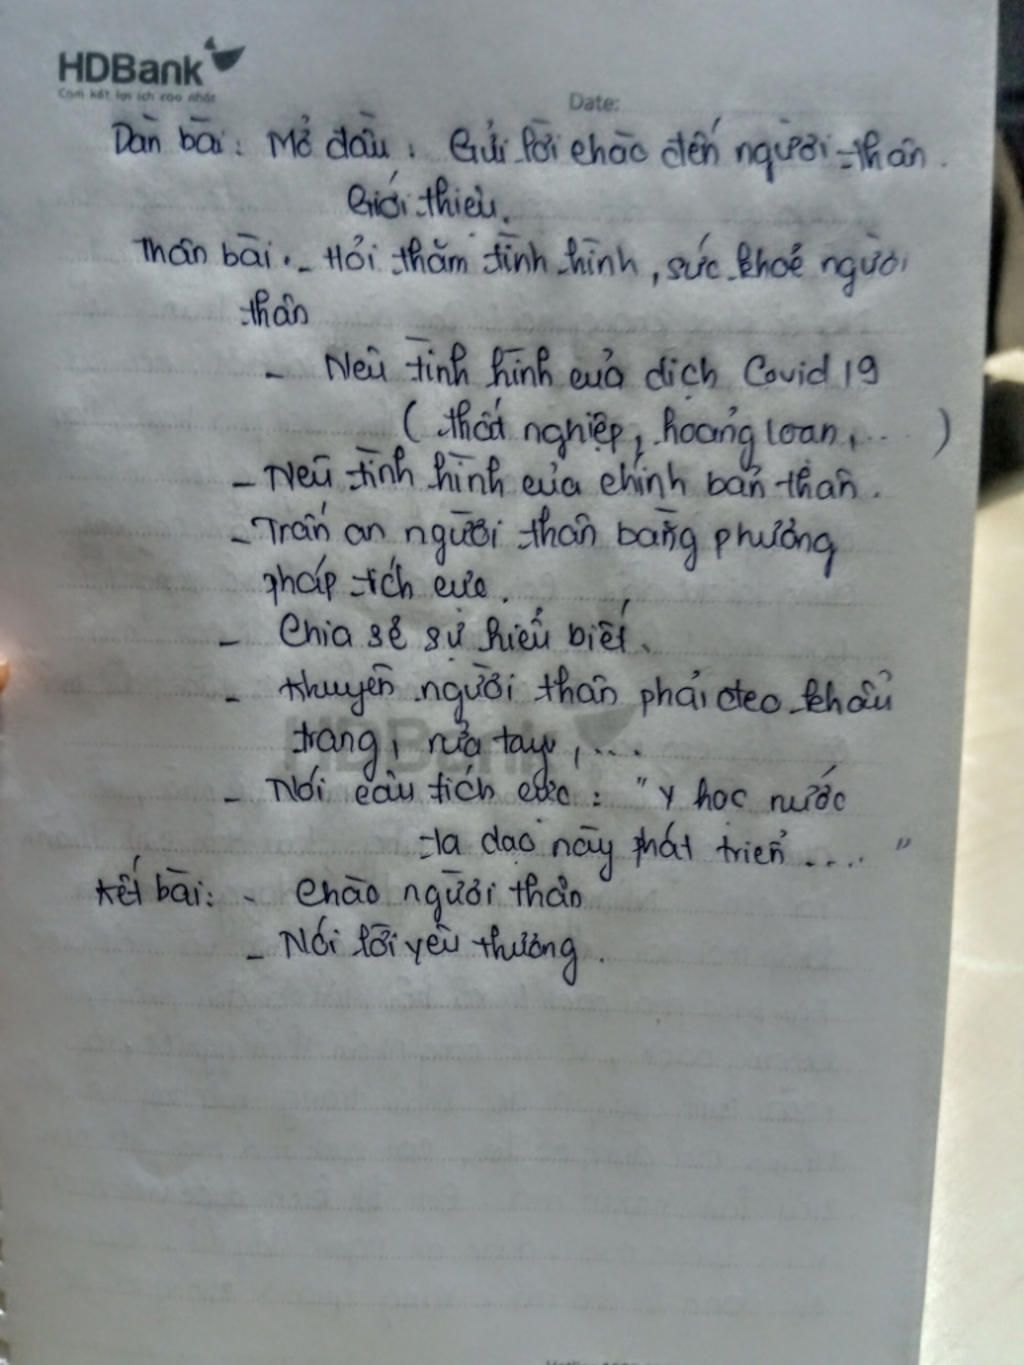 HDBank
Cam kết lợi ích cao nhất
Date:
Dàn bài: Mở đầu: Gửi lời chào đến người thân.
Giới thiệu.
Thân bài: - Hỏi thăm tình hình, sức khoẻ người
thân
- Nêu tình hình của dịch Covid 19
( thất nghiệp, hoảng loạn, ... )
- Nêu tình hình của chính bản thân.
- Trấn an người thân bằng phương
pháp tích cực.
- Chia sẻ sự hiểu biết.
- Khuyên người thân phải đeo khẩu
trang, rửa tay, ....
- Nói câu tích cực: "Y học nước
ta dạo này phát triển .... "
Kết bài: - Chào người thân
- Nói lời yêu thương.
HDBank